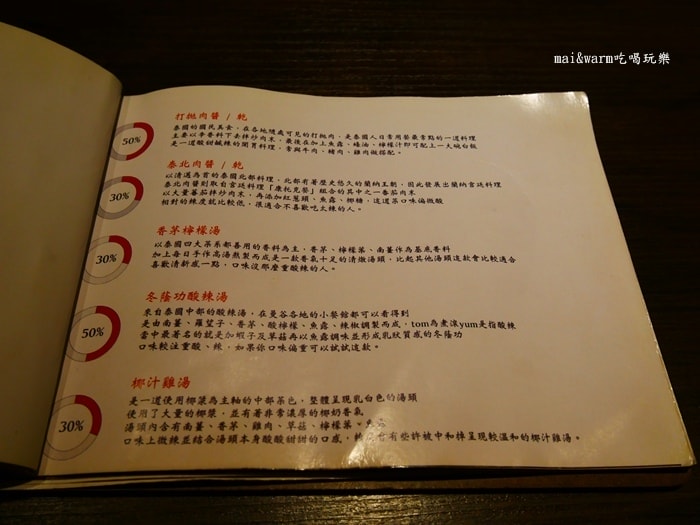 mai&warm吃喝玩樂
打拋肉醬 / 乾
50%
泰國的國民美食，在各地隨處可見的打拋肉，是泰國人日常用餐最常點的一道料理
主要以辛香料下去拌炒肉末，最後在加上魚露、蠔油、檸檬汁即可配上一大碗白飯
是一道酸甜鹹辣的開胃料理，常與牛肉、豬肉、雞肉做搭配。
泰北肉醬 / 乾
30%
以清邁為首的泰國北部料理，北部有著歷史悠久的蘭納王朝，因此發展出蘭納宮廷料理
泰北肉醬則取自宮廷料理「康托克餐」組合的其中之一番茄肉末
以大量蕃茄拌炒肉末，再添加紅蔥頭、魚露、椰糖，這道菜口味偏微酸
相對的辣度就比較低，很適合不喜歡吃太辣的人。
香茅檸檬湯
30%
以泰國四大菜系都善用的香料為主，香茅、檸檬葉、南薑作為基底香料
加上每日手作高湯熬製而成是一款香氣十足的清燉湯頭，比起其他湯頭這款會比較適合
喜歡清新感一點，口味沒那麼重酸辣的人。
冬蔭功酸辣湯
50%
來自泰國中部的酸辣湯，在曼谷各地的小餐館都可以看得到
是由南薑、羅望子、香茅、酸檸檬、魚露、辣椒調製而成，tom為煮滾yum是指酸辣
當中最著名的就是加蝦子及草菇再以魚露調味並形成乳狀質感的冬蔭功
口味較注重酸、辣，如果你口味偏重可以試試這款。
椰汁雞湯
30%
是一道使用椰漿為主軸的中部菜色，整體呈現乳白色的湯頭
使用了大量的椰漿，並有著非常濃厚的椰奶香氣
湯頭內含有南薑、香茅、雞肉、草菇、檸檬葉、魚露
口味上微辣並結合湯頭本身酸酸甜甜的口感，有些許被中和掉呈現較溫和的椰汁雞湯。